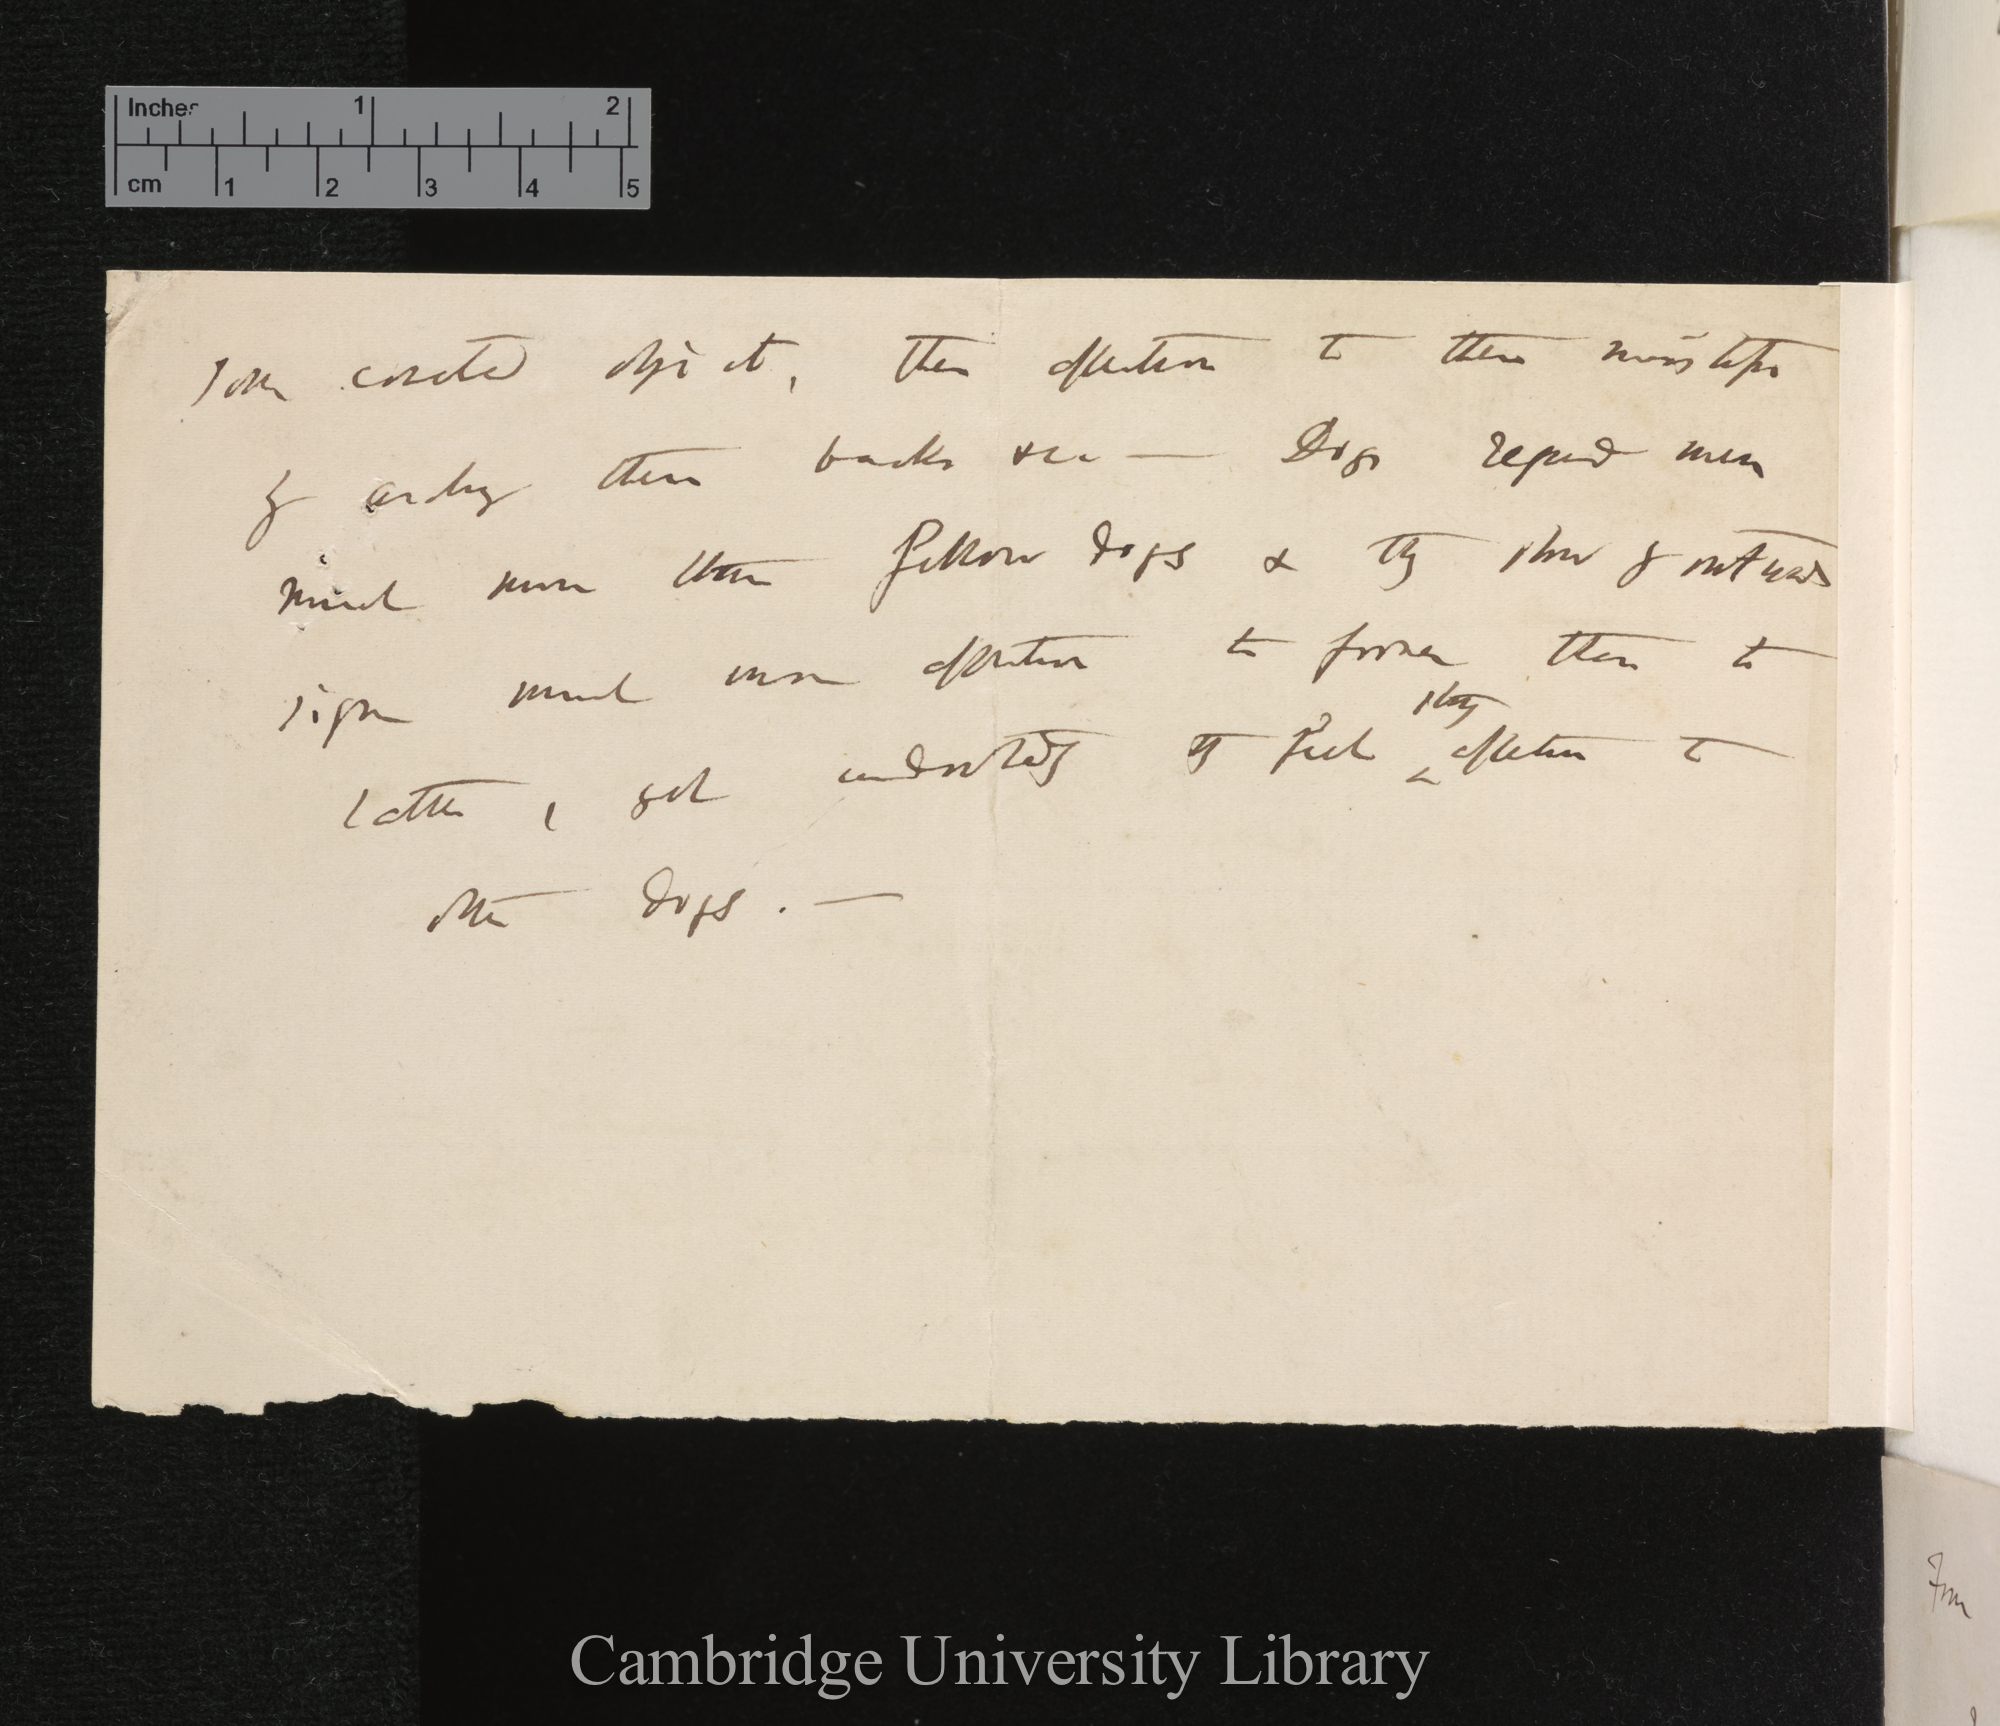 Inches 1 2
cm 1 2 3 4 5
some coveted object, their affection to their
by arching their backs &c — Dogs regard men
much more than fellow dogs & they show by outward
signs much more affection to former than to
latter, yet undoubtedly they feel strong affection to
other dogs. —
From
Cambridge University Library